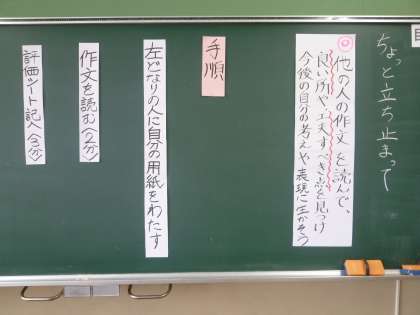 ちょっと立ち止まって
◎他の人の作文を読んで、
良い所や、工夫すべき点を見つけ
今後の自分の考えや表現に生かそう
手順
左どなりの人に自分の用紙をわたす
作文を読む(2分)
評価シート記入(3分)